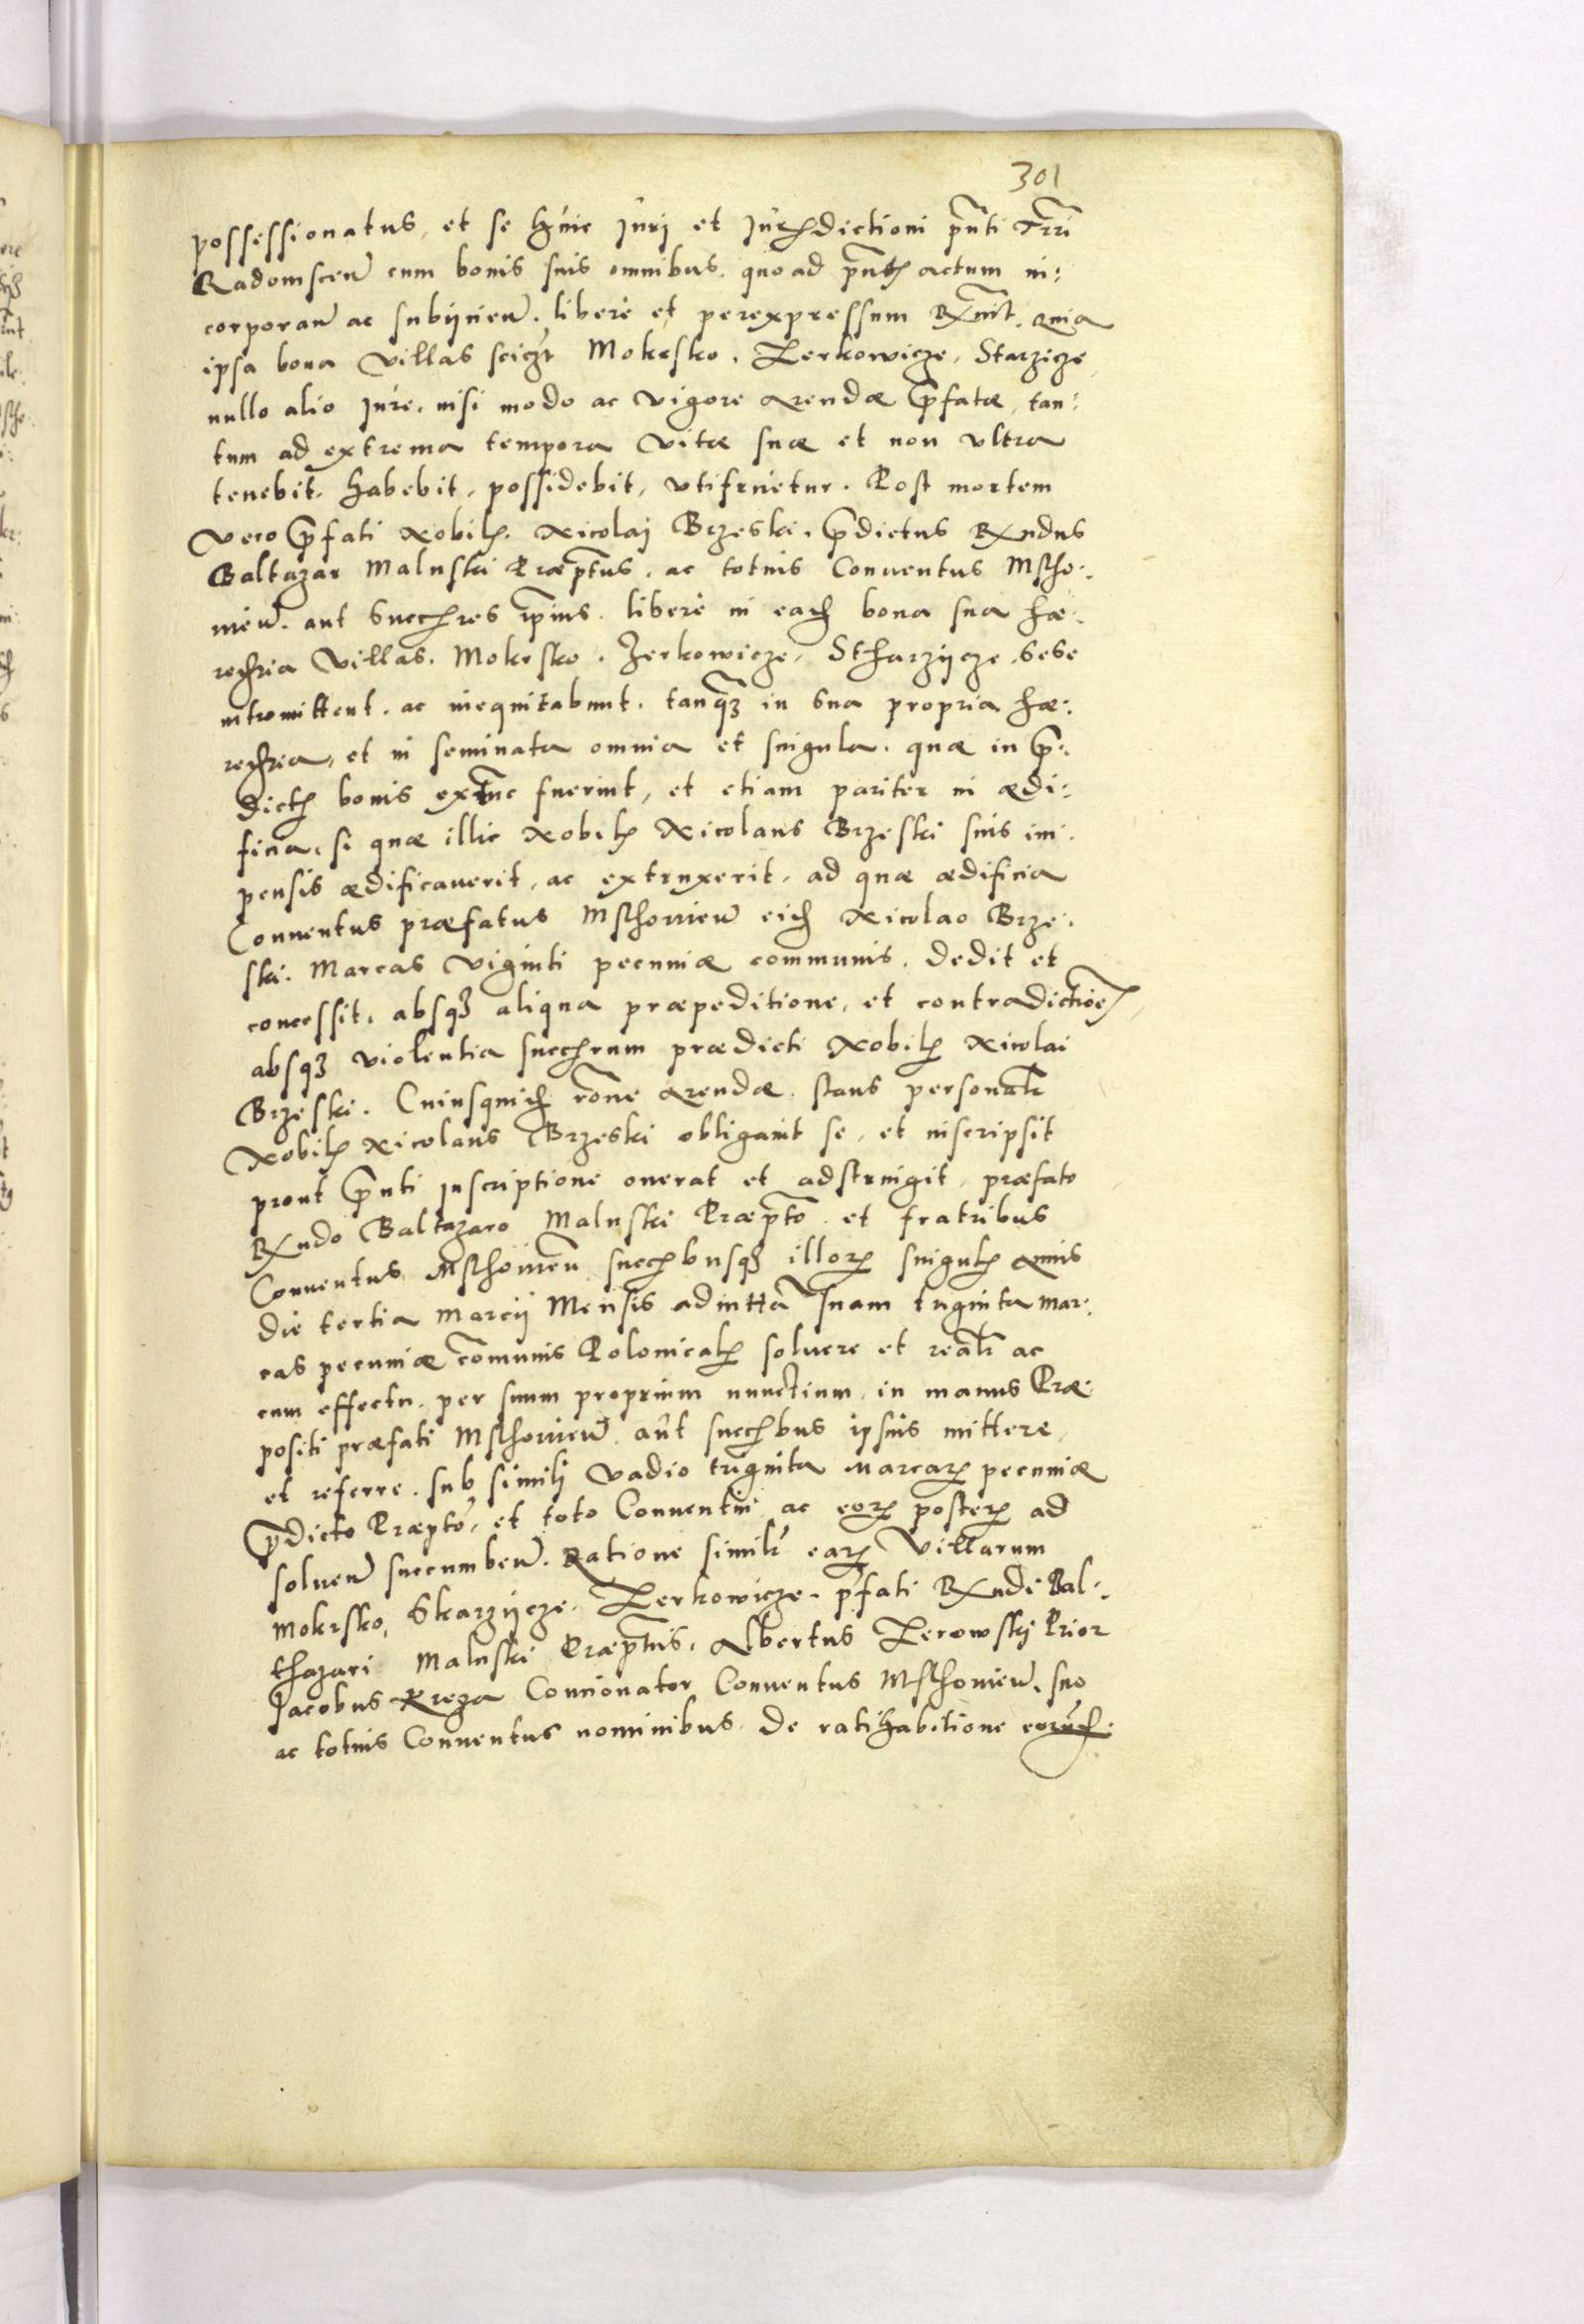 301
possessionatus, et se huic Juri et Jurisdictioni pn̄ti Trrī
Radomscen̄ cum bonis suis omnibus. quo ad pn̄tē actum in:
corporan̄ ac subijcien̄. libere et per expressum Rx̄nit. quia
ipsa bona villas scicz̄t Mokrsko, Zerkowicze, Starzicze
nullo alio Jure, nisi modo ac vigore arendæ p̄fatæ, tan:
tum ad extrema tempora vitæ suæ et non vltra
tenebit. habebit, possidebit, vtifruetur. Post mortem
vero p̄fati Nobilꝭ. Nicolaj Brzeski. p̄dictus Rx̄ndus
Baltazar Maluski Præptūs. ac totius Conuentus Mscho:
uien̄. aut succꝭres ip̄ius. libere in eadꝭ bona sua hæ:
redꝭria villas. Mokrsko. Zerkowicze, Stharzijcze, sese
intromittent. ac inequitabunt. tanqꝫ in sua propria hæ:
redꝭria, et in seminata omnia et singula. quæ in p̄:
dictꝭ bonis extunc fuerint, et etiam pariter in ædi:
ficia, si quæ illic Nobilꝭ Nicolaus Brzeski suis im:
pensis ædificauerit, ac extruxerit, ad quæ ædificia
Conuentus præfatus Mschouien̄ eidꝭ Nicolao Brze:
ski. Marcas viginti pecuniæ communis. dedit et
concessit, absqꝫ aliqua præpeditione, et contradictioē,
absqꝫ violentia succꝭrum prædicti Nobilꝭ Nicolai
Brzeski. Cuiusquidꝭ rōne arendæ. stans personalr̄
Nobilꝭ Nicolaus Brzeski obligauit se, et inscripsit
prout p̄nti inscriptione onerat et adstringit, præfato
Rx̄ndo Baltazaro Maluski Præptō et fratribus
Conuentus Mschouien̄ succꝭbusqꝫ illorꝝ singulꝭ annis
die tertia Marcij Mensis ad inttā suam triginta mar:
cas pecuniæ cōmunis Polonicalꝭ soluere et realr̄ ac
cum effectu. per suum proprium nunctium. in manus Præ:
positi præfati Mschouien̄. aut succꝭbus ipsius mittere,
et referre. sub simili vadio triginta marcarꝝ pecuniæ
p̄dicto Præptō, et toto Conuentui ac eorꝝ posterꝝ ad
soluen̄ succumben̄. Ratione similr̄ earꝝ Villarum
Mokrsko, Skarzijcze, Zerkowicze. p̄fati Rx̄ndi Bal:
thazari Maluski Præptūs. Albertus Zerowskj Prior
Jacobus Krega Concionator Conuentus Mschouien̄. suo
ac totius Conuentus nominibus. de ratihabitione eorundꝭ.